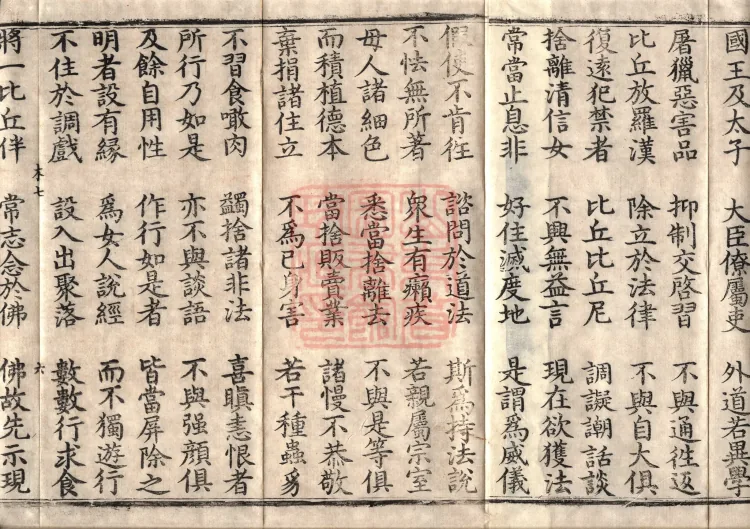 國王及太子 大臣僚屬吏 外道若異學
屠獵惡害品 抑制交啓習 不與通徃返
比丘放羅漢 除立於法律 不與自大俱
復遠犯禁者 比丘比丘尼 調譺潮話談
捨離清信女 不興無益言 現在欲獲法
常當止息非 好住滅度地 是謂為威儀
假使不肯徃 諮問於道法 斯為持法說
不怯無所著 衆生有癩疾 若親屬宗室
毋人諸細色 悉當捨離去 不與是等俱
而積植德本 當捨販賣業 諸慢不恭敬
棄捐諸住立 不為已身害 若干種蟲爲
不習食噉肉 蠲捨諸非法 喜瞋恚恨者
所行乃如是 亦不與談語 不與强顔俱
及餘自用性 作行如是者 皆當屏除之
明者設有緣 爲女人說經 而不獨遊行
不住於調戲 設入出聚落 數數行求食
木七 六
將一比丘伴 常志念於佛 佛故先示現